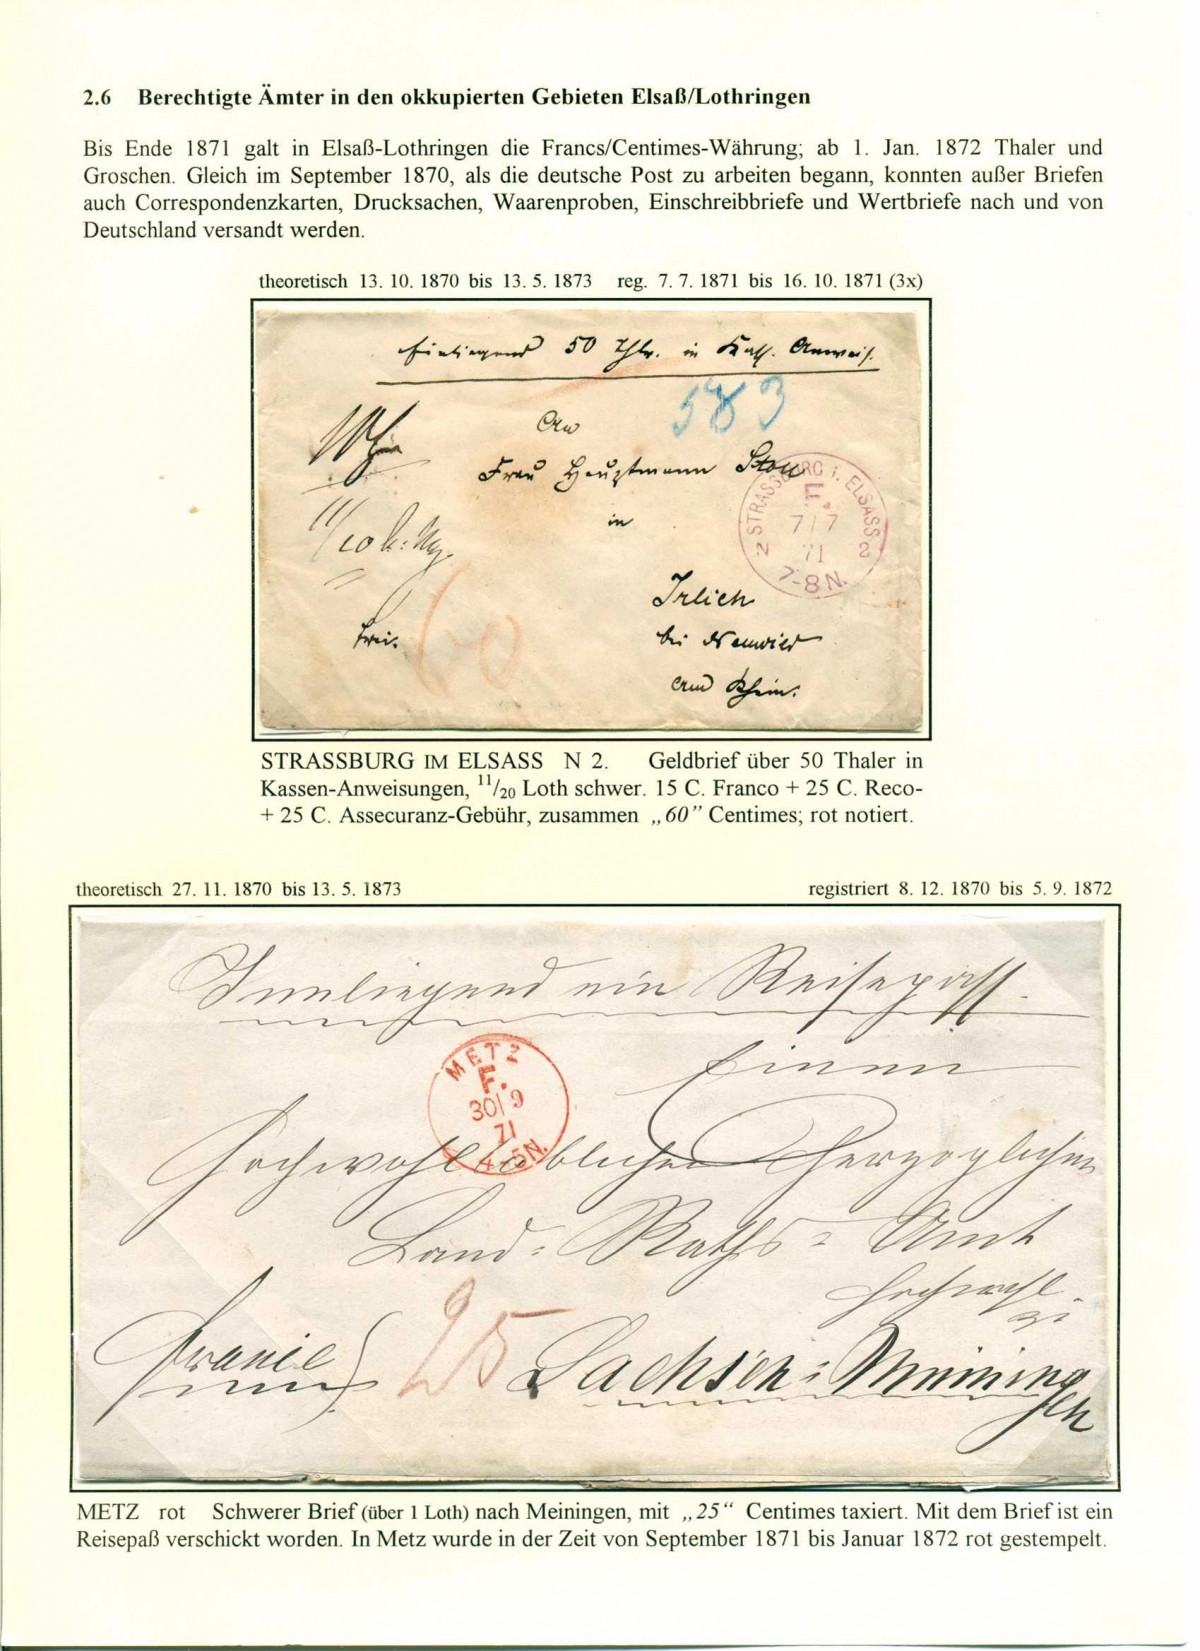 2.6 Berechtigte Ämter in den okkupierten Gebieten Elsaß/Lothringen
Bis Ende 1871 galt in Elsaß-Lothringen die Francs/Centimes-Währung; ab 1. Jan. 1872 Thaler und
Groschen. Gleich im September 1870, als die deutsche Post zu arbeiten begann, konnten außer Briefen
auch Correspondenzkarten, Drucksachen, Waarenproben, Einschreibbriefe und Wertbriefe nach und von
Deutschland versandt werden.
theoretisch 13. 10. 1870 bis 13. 5. 1873 reg. 7. 7. 1871 bis 16. 10. 1871 (3x)
Einliegend 50 Thlr. in Kass. Anweis.
583
An
Frau Hauptmann Stou
in
STRASSBURG i. ELSASS
F.
7/7
71
N 2
7-8 N.
11/20
frei.
60
Irlich
bei Neuwied
am Rhein.
STRASSBURG IM ELSASS N 2. Geldbrief über 50 Thaler in
Kassen-Anweisungen, 11/20 Loth schwer. 15 C. Franco + 25 C. Reco-
+ 25 C. Assecuranz-Gebühr, zusammen „60” Centimes; rot notiert.
theoretisch 27. 11. 1870 bis 13. 5. 1873 registriert 8. 12. 1870 bis 5. 9. 1872
Innliegend ein Reisepass.
METZ
F.
30/9
71
4-5N.
Einem
Hochwohllöblichen Herzoglichen
Land-Raths-Amt
zu
25
Sachsen-Meiningen
METZ rot Schwerer Brief (über 1 Loth) nach Meiningen, mit „25“ Centimes taxiert. Mit dem Brief ist ein
Reisepaß verschickt worden. In Metz wurde in der Zeit von September 1871 bis Januar 1872 rot gestempelt.